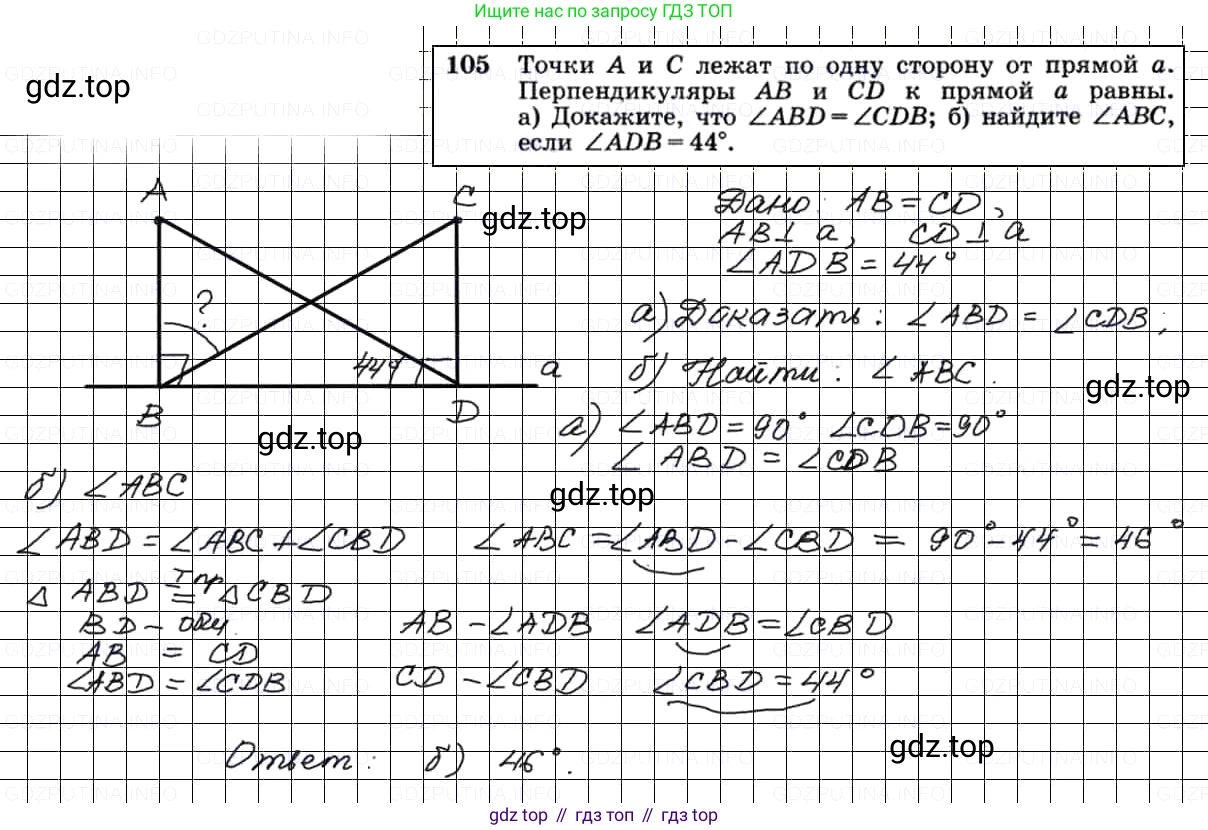 Ищите нас по запросу ГДЗ ТОП
105 Точки A и C лежат по одну сторону от прямой a.
Перпендикуляры AB и CD к прямой a равны.
а) Докажите, что ∠ABD=∠CDB; б) найдите ∠ABC,
если ∠ADB=44°.
gdz.top
A
C
gdz.top
?
44°
a
B
D
gdz.top
Дано: AB = CD,
AB⊥a, CD⊥a
∠ADB = 44°
а) Доказать: ∠ABD = ∠CDB;
б) Найти: ∠ABC.
gdz.top
а) ∠ABD = 90° ∠CDB = 90°
∠ABD = ∠CDB
б) ∠ABC
gdz.top
∠ABD = ∠ABC + ∠CBD ∠ABC = ∠ABD - ∠CBD = 90° - 44° = 46°
△ABD = Iпр △CBD
BD - общ.
AB = CD
∠ABD = ∠CDB
AB - ∠ADB ∠ADB = ∠CBD
CD - ∠CBD ∠CBD = 44°
gdz.top
Ответ: б) 46°.
gdz top // гдз топ // gdz top
GDZPUTINA.INFO